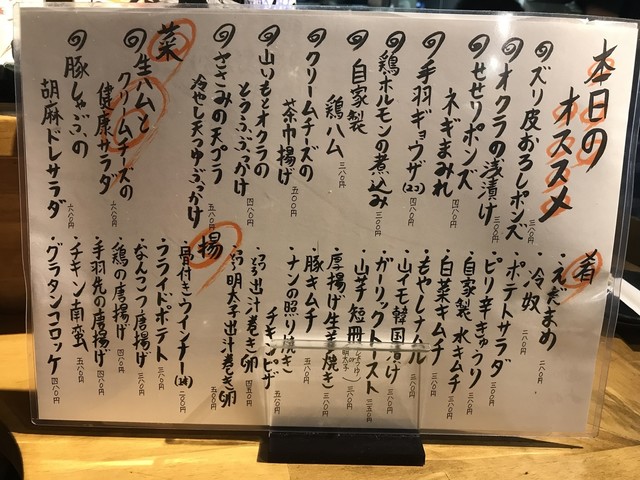 本日の
オススメ
ズリ皮おろしポンズ 三八〇円
オクラの浅漬け 三〇〇円
せせりポンズ
ネギまみれ 四八〇円
手羽ギョウザ(2コ) 四八〇円
鶏ホルモンの煮込み 三八〇円
自家製
鶏ハム 三八〇円
クリームチーズの
茶巾揚げ 五〇〇円
山いもとオクラの
とうふぶっかけ 四八〇円
ささみの天プラ
冷やし天つゆぶっかけ 五八〇円
菜
生ハムと
クリームチーズの
健康サラダ 六八〇円
豚しゃぶの
胡麻ドレサラダ 六八〇円
肴
・えだまめ 二八〇円
・冷奴 二八〇円
・ポテトサラダ 三八〇円
・ピリ辛きゅうり 三八〇円
・自家製水キムチ 三八〇円
・白菜キムチ 三八〇円
・もやしナムル 三八〇円
・山イモ韓国漬け 三八〇円
・ガーリックトースト 三五〇円
・山芋短冊
・厚揚げ生姜焼き 三八〇円
・豚キムチ 五八〇円
・ナンの照り焼き
チキンピザ 五八〇円
・出汁巻き卵 四五〇円
・明太子出汁巻き卵
揚
・骨付きウインナー
・フライドポテト 三八〇円
・なんこつ唐揚げ 四八〇円
・鶏の唐揚げ 四八〇円
・手羽先の唐揚げ 四八〇円
・チキン南蛮 五八〇円
・グラタンコロッケ 四八〇円